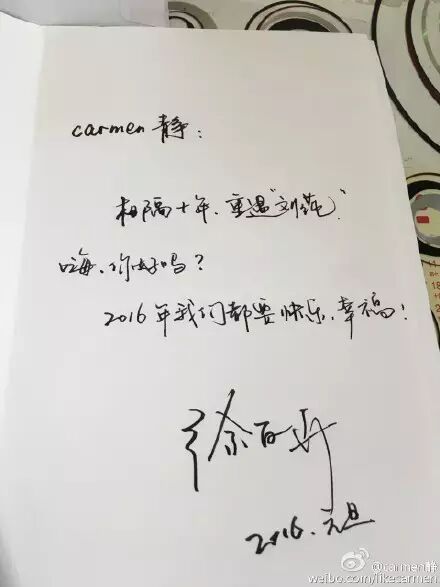 carmen 静：
相隔十年，重遇“刘”！
嗨，你好吗？
2016年我们都要快乐，幸福！
徐百卉
2016.元旦
@carmen静
weibo.com/likecarmen